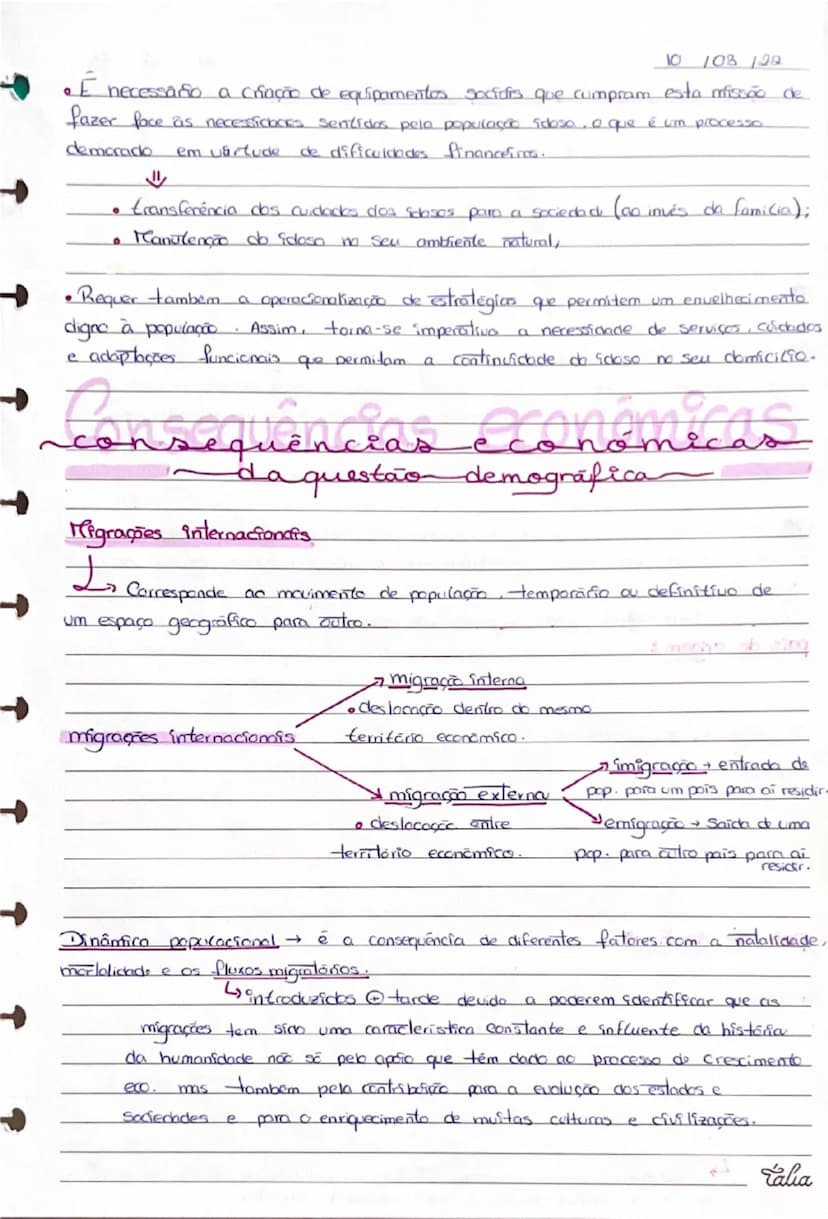 10 / 03 / 22
• É necessário a criação de equipamentos sociais que cumpram esta missão de
fazer face às necessidades sentidas pela população idosa, o que é um processo
demorado em virtude de dificuldades financeiras.
⇓
• transferência dos cuidados dos idosos para a sociedade (ao invés da família);
• Manutenção do idoso no seu ambiente natural,
• Requer também a operacionalização de estratégias que permitem um envelhecimento
digno à população. Assim, torna-se imperativo a necessidade de serviços, cuidados
e adaptações funcionais que permitam a continuidade do idoso no seu domicílio.
Consequências económicas
consequências económicas
da questão demográfica
Migrações internacionais
↳ Corresponde ao movimento de população, temporário ou definitivo de
um espaço geográfico para outro.
migração interna
• deslocação dentro do mesmo
território económico.
migrações internacionais
migração externa
• deslocação entre
território económico.
imigração → entrada de
pop. para um país para aí residir.
emigração → saída de uma
pop. para outro país para aí
residir.
Dinâmica populacional → é a consequência de diferentes fatores com a natalidade,
mortalidade e os fluxos migratórios.
↳ introduzidos ⊕ tarde devido a poderem identificar que as
migrações tem sido uma característica constante e influente da história
da humanidade não só pelo apoio que têm dado ao processo de crescimento
eco. mas também pela contribuição para a evolução dos estados e
sociedades e para o enriquecimento de muitas culturas e civilizações.
Tália